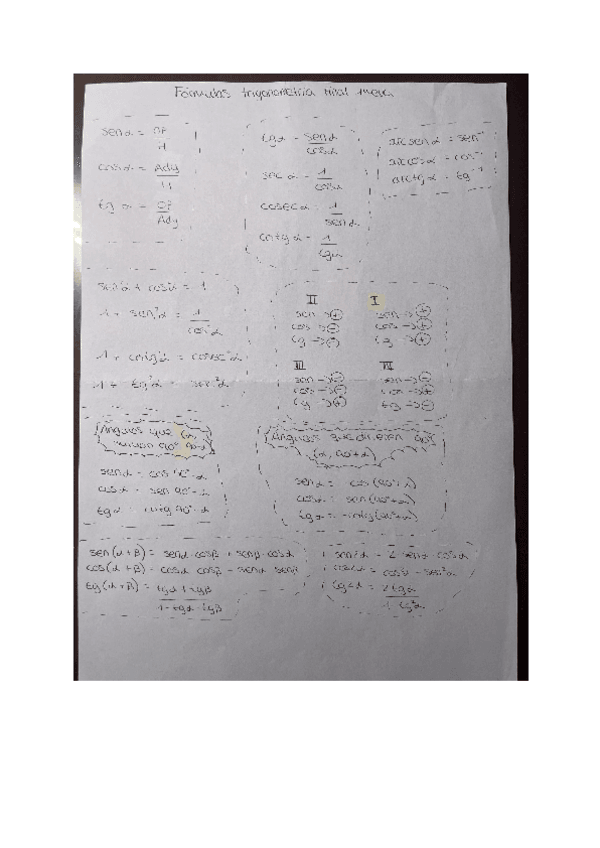 Fórmulas trigonometría
sen α = Op
H
cos α = Ady
H
tg α = Op
Ady
tg α = sen α
cos α
sec α = 1
cos α
cosec α = 1
sen α
cotg α = 1
tg α
arcsen α = sen⁻¹
arccos α = cos⁻¹
arctg α = tg⁻¹
sen²α + cos²α = 1
1 + sen²α = 1
cos²α
1 + cotg²α = cosec²α
1 + tg²α = sec²α
II
sen → +
cos → −
tg → −
I
sen → +
cos → +
tg → +
III
sen → −
cos → −
tg → +
IV
sen → −
cos → +
tg → −
Ángulos que
suman 90° 90-α
sen α = cos 90°-α
cos α = sen 90°-α
tg α = cotg 90°-α
Ángulos que difieren 90°
(α, 90°+α)
sen α =
cos α = sen(90°+α)
tg α = -cotg(90°+α)
sen(α+β) = sen α · cos β + sen β · cos α
cos(α+β) = cos α · cos β - sen α · sen β
tg(α+β) = tg α + tg β
1 - tg α · tg β
sen2α = 2 sen α · cos α
cos2α = cos²α - sen²α
tg2α = 2tg α
1 - tg²α